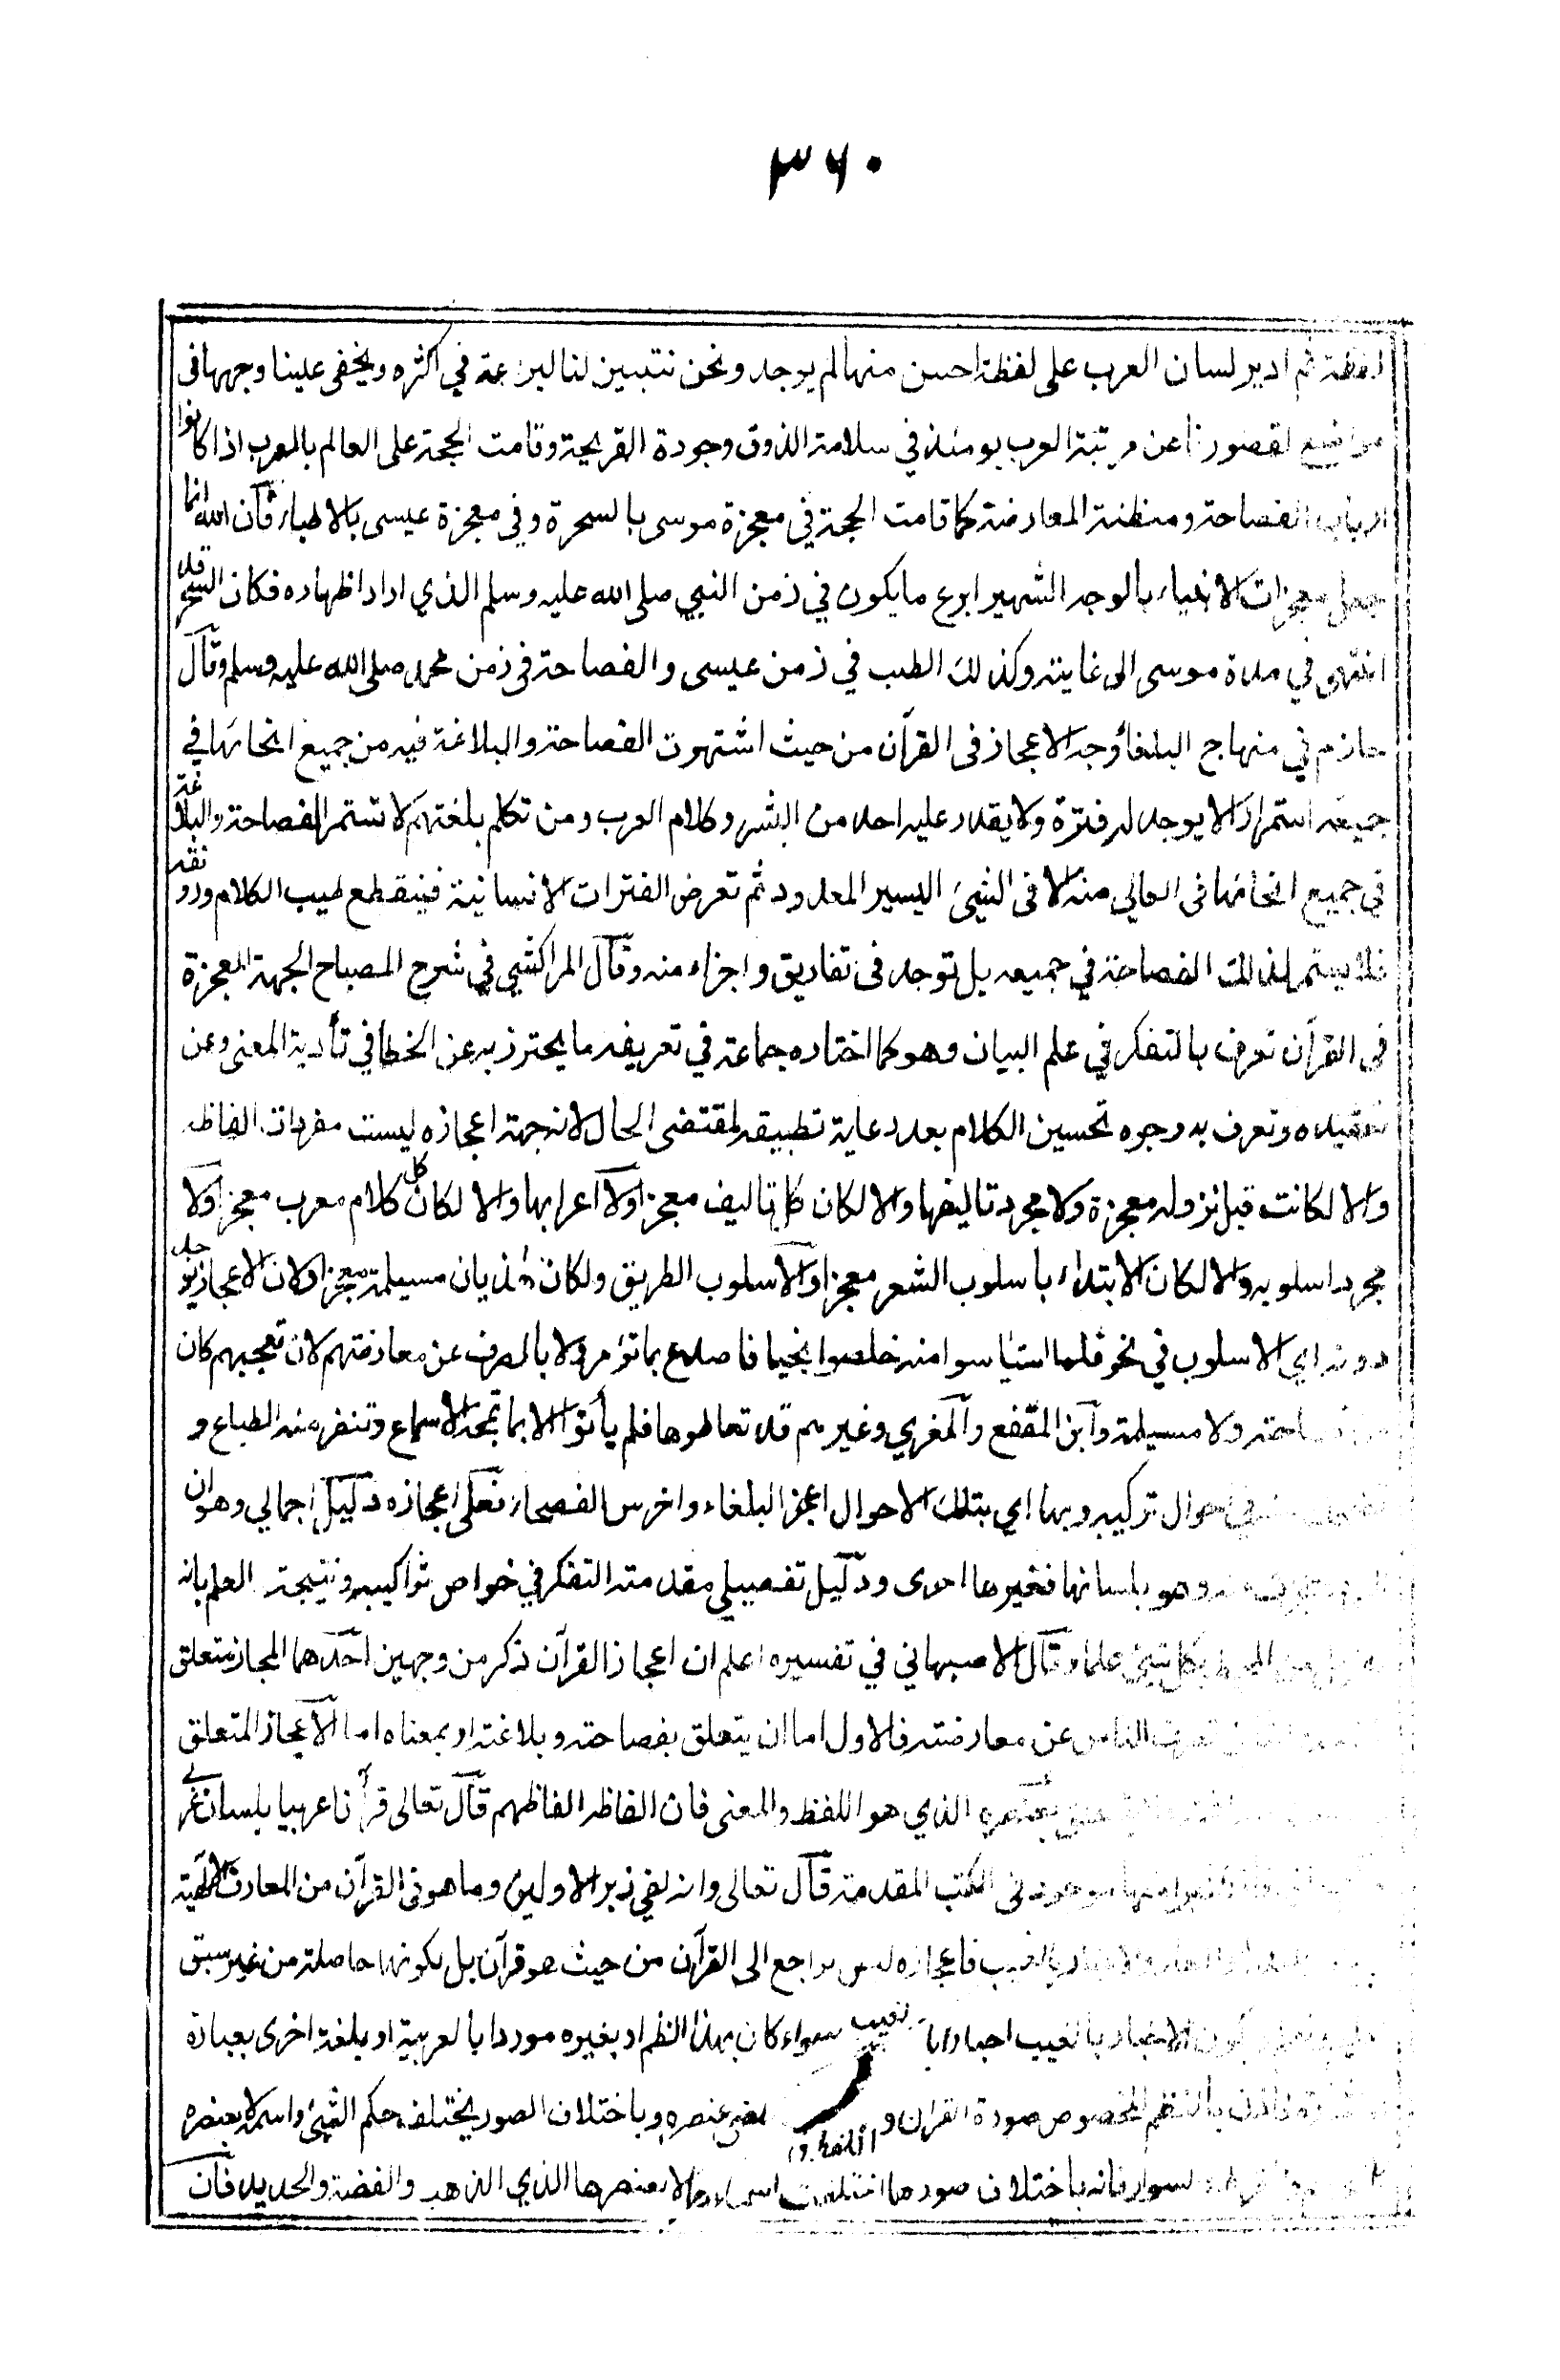 ۳۶۰
لفظة ثم ادير لسان العرب على لفظة احسن منها لم يوجد ونحن نتبين لنا البراعة في اكثره ويخفى علينا وجهها في
مواضع لقصورنا عن مرتبة العرب يومئذ في سلامة الذوق وجودة القريحة وقامت الحجة على العالم بالعرب اذا كانوا
ارباب الفصاحة ومظنة المعارضة كما قامت الحجة في معجزة موسى بالسحرة وفي معجزة عيسى بالاطباء فان الله انما
جعل معجزات الانبياء بالوجه الشهير ابرع ما يكون في زمن النبي صلى الله عليه وسلم الذي اراد اظهاره فكان السحر قد
انتهى في مدة موسى الى غايته وكذلك الطب في زمن عيسى والفصاحة في زمن محمد صلى الله عليه وسلم وقال
حازم في منهاج البلغاء وجه الاعجاز في القرآن من حيث اشتهرت الفصاحة والبلاغة فيه من جميع انحائها في
جميعه استمرارا لا يوجد له فترة ولا يقدر عليه احد من البشر وكلام العرب ومن تكلم بلغتهم لا تستمر الفصاحة والبلاغة
في جميع انحائها في العالي منه الا في الشيئ اليسير المعدود ثم تعرض الفترات الانسانية فينقطع طيب الكلام ورونقه
فلا يستمر لذلك الفصاحة في جميعه بل توجد في تفاريق واجزاء منه وقال المراكشي في شرح المصباح الجهة المعجزة
في القرآن تعرف بالتفكر في علم البيان وهو كما اختاره جماعة في تعريفه ما يحترز به عن الخطا في تأدية المعنى وعن
تعقيده وتعرف به وجوه تحسين الكلام بعد رعاية تطبيقه لمقتضى الحال لانه جهة اعجازه ليست مفردات الفاظه
والا لكانت قبل نزوله معجزة ولا مجرد تاليفها والا لكان كل تاليف معجزا ولا اعرابها والا لكان كل كلام معرب معجزا ولا
مجرد اسلوبه والا لكان الابتداء باسلوب الشعر معجزا والاسلوب الطريق ولكان هذيان مسيلمة معجزا ولان الاعجاز يوجد
دونه اي الاسلوب في نحو فلما استيأسوا منه خلصوا نجيا فاصدع بما تؤمر ولا بالصرف عن معارضتهم لان تعجبهم كان
من فصاحته ولا مسيلمة وابن المقفع والمغري وغيرهم قد تعاطوها فلم يأتوا الا بما تمجه الاسماع وتنفر منه الطباع و
في احوال تركيبه وبها اي بتلك الاحوال اعجز البلغاء واخرس الفصحاء فعلى اعجازه دليل اجمالي وهو ان
وهو بلسانها فغيرها احرى ودليل تفصيلي مقدمته التفكر في خواص تراكيبه ونتيجته العلم بانه
المحيط بكل شيئ علما وقال الاصبهاني في تفسيره اعلم ان اعجاز القرآن ذكر من وجهين احدهما اعجاز متعلق
الناس عن معارضته فالاول اما ان يتعلق بفصاحته وبلاغته او بمعناه اما الاعجاز المتعلق
بعنصره الذي هو اللفظ والمعنى فان الفاظه الفاظهم قال تعالى قرآنا عربيا بلسان عربي
موجود في الكتب المقدمة قال تعالى وانه لفي زبر الاولين وما هو في القرآن من المعارف الالهية
بالغيب فاعجازه ليس براجع الى القرآن من حيث هو قرآن بل بكونها حاصلة من غير سبق
الاخبار بالغيب اخبارا بالغيب سواء كان بهذا النظم او بغيره موردا بالعربية او بلغة اخرى بعبارة
بالنظم المخصوص صورة القران و اللفظ والمعنى عنصره وباختلاف الصور يختلف حكم الشيئ واسمه لا بعنصره
سوار فانه باختلاف صورها اختلفت اسماءها لا بعنصرها الذي الذهب والفضة والحديد فان